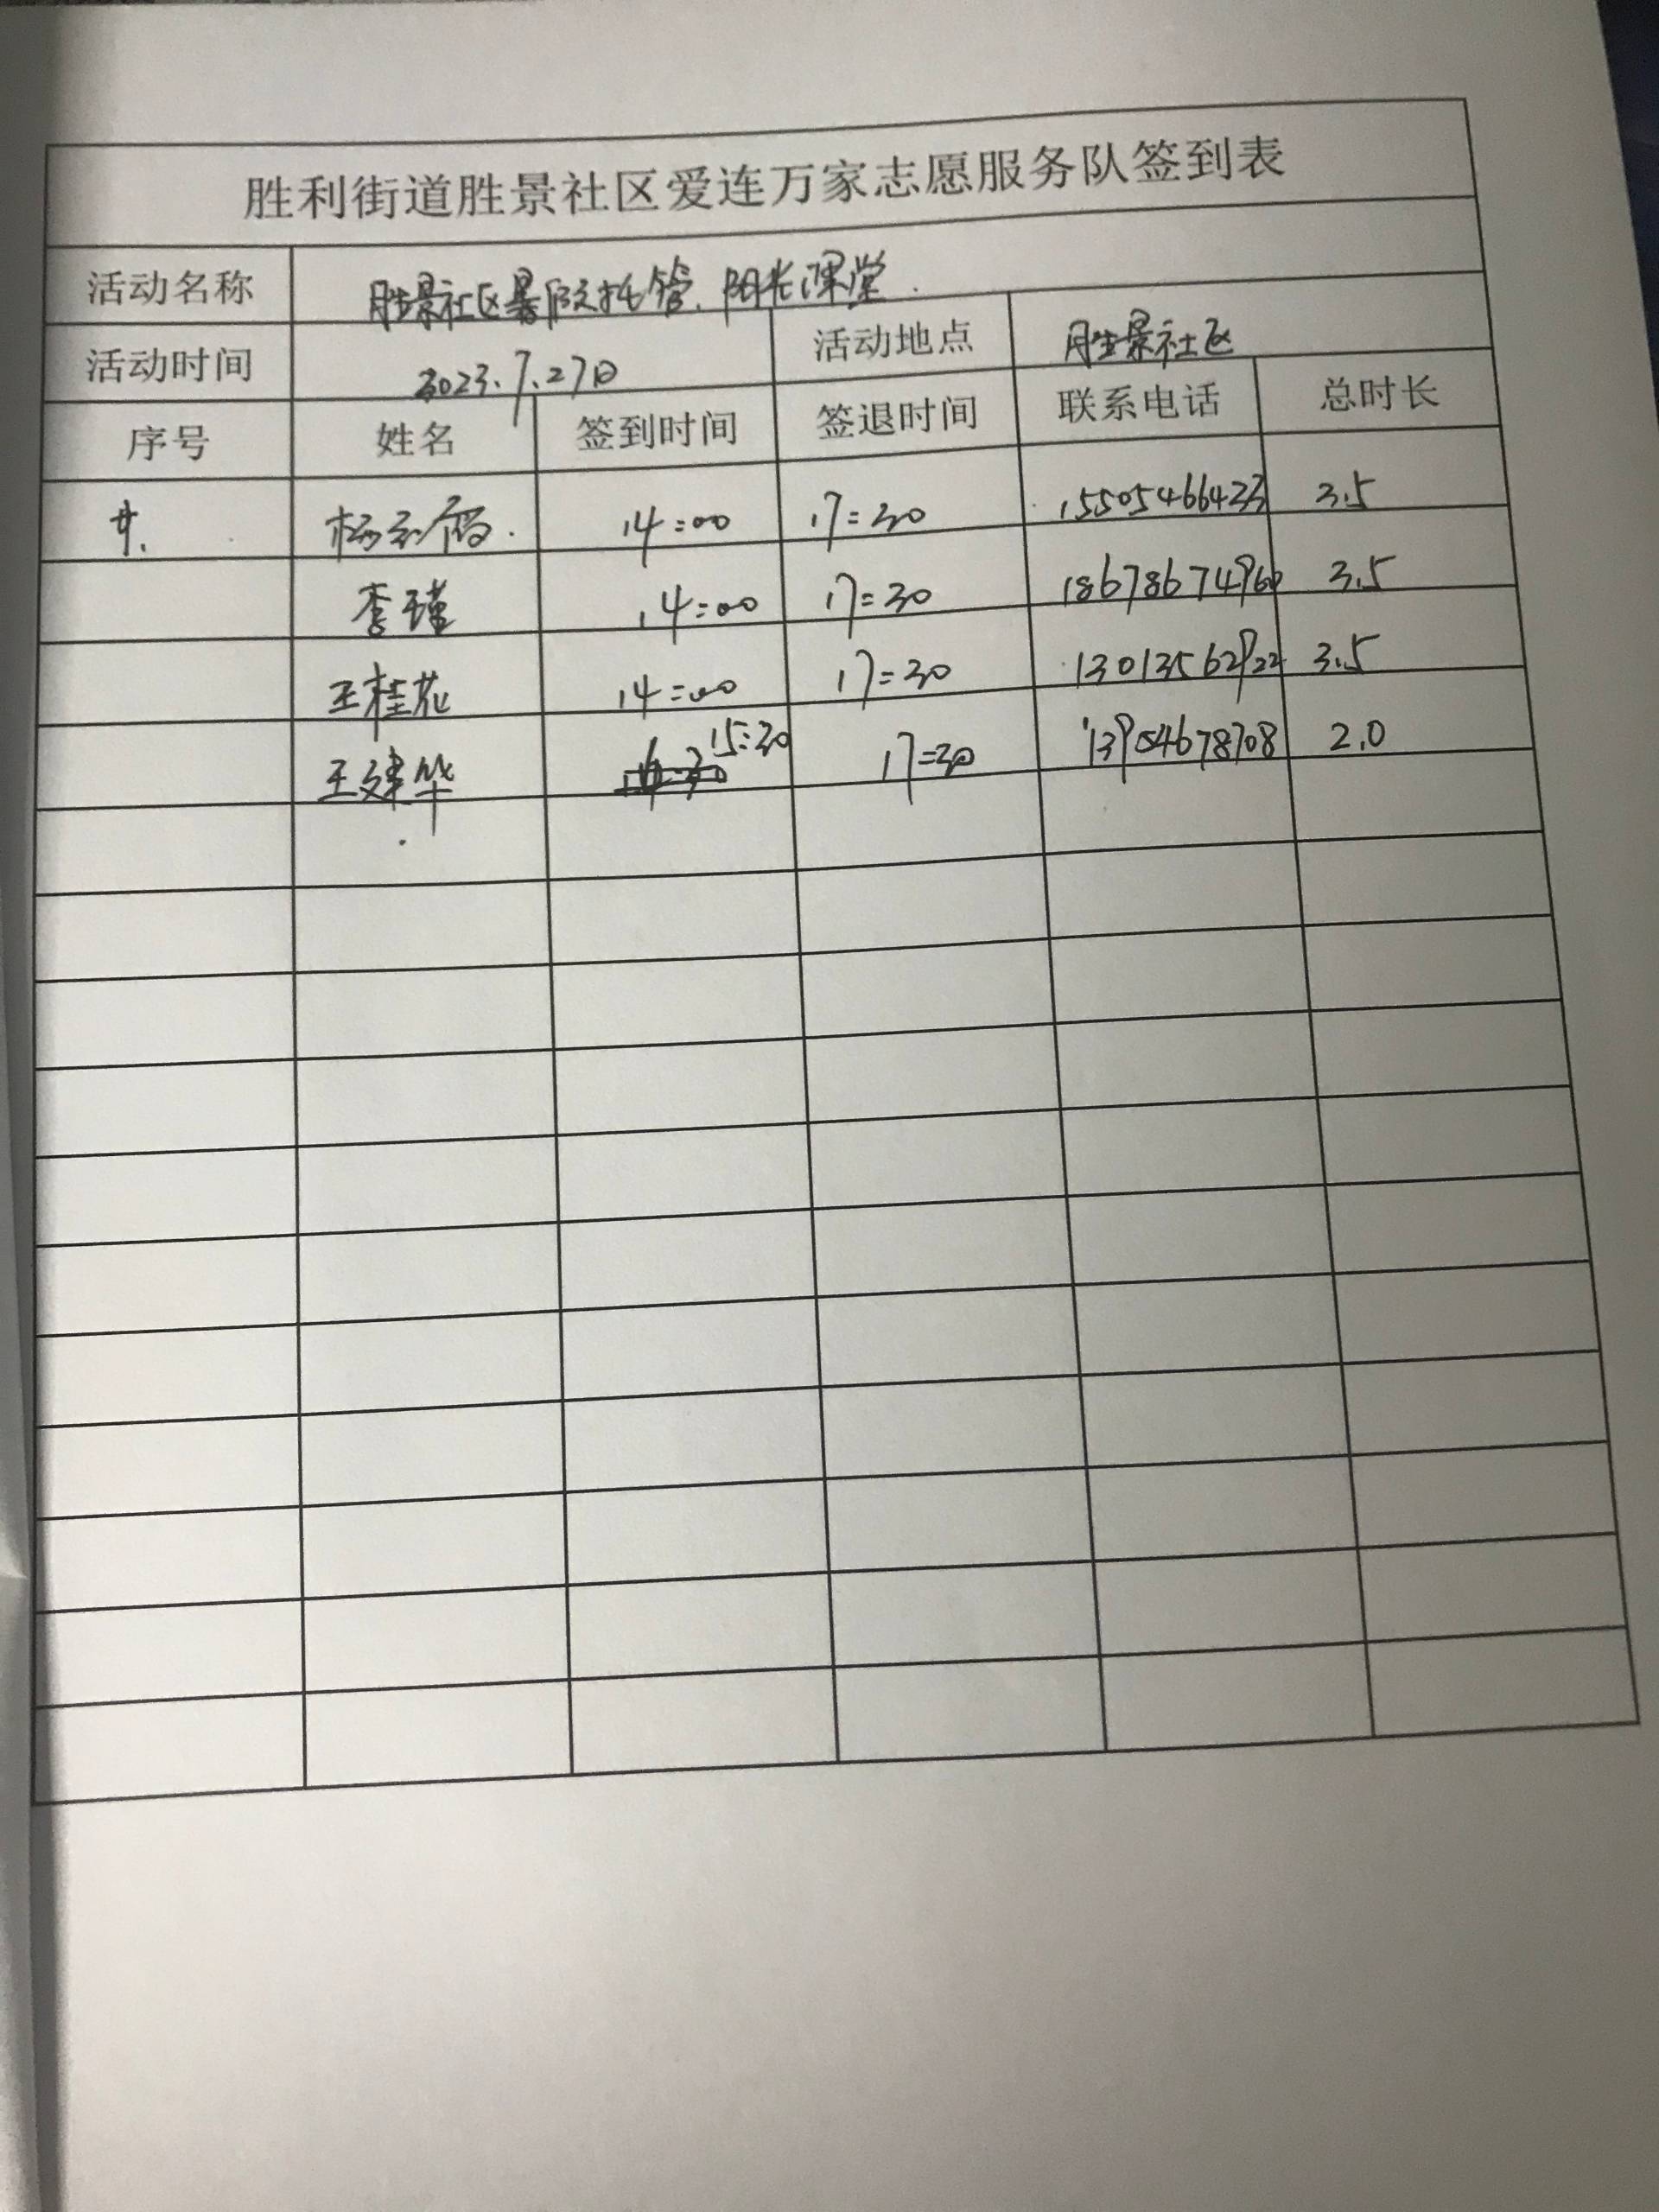 胜利街道胜景社区爱连万家志愿服务队签到表
活动名称 胜景社区暑假托管.阳光课堂.
活动时间 2023.7.27日 活动地点 胜景社区
序号 姓名 签到时间 签退时间 联系电话 总时长
14:00 17:30 15505466423 3.5
李瑾 14:00 17:30 18678674960 3.5
王桂花 14:00 17:30 13013562922 3.5
王建华 15:30 17:30 13954678708 2.0